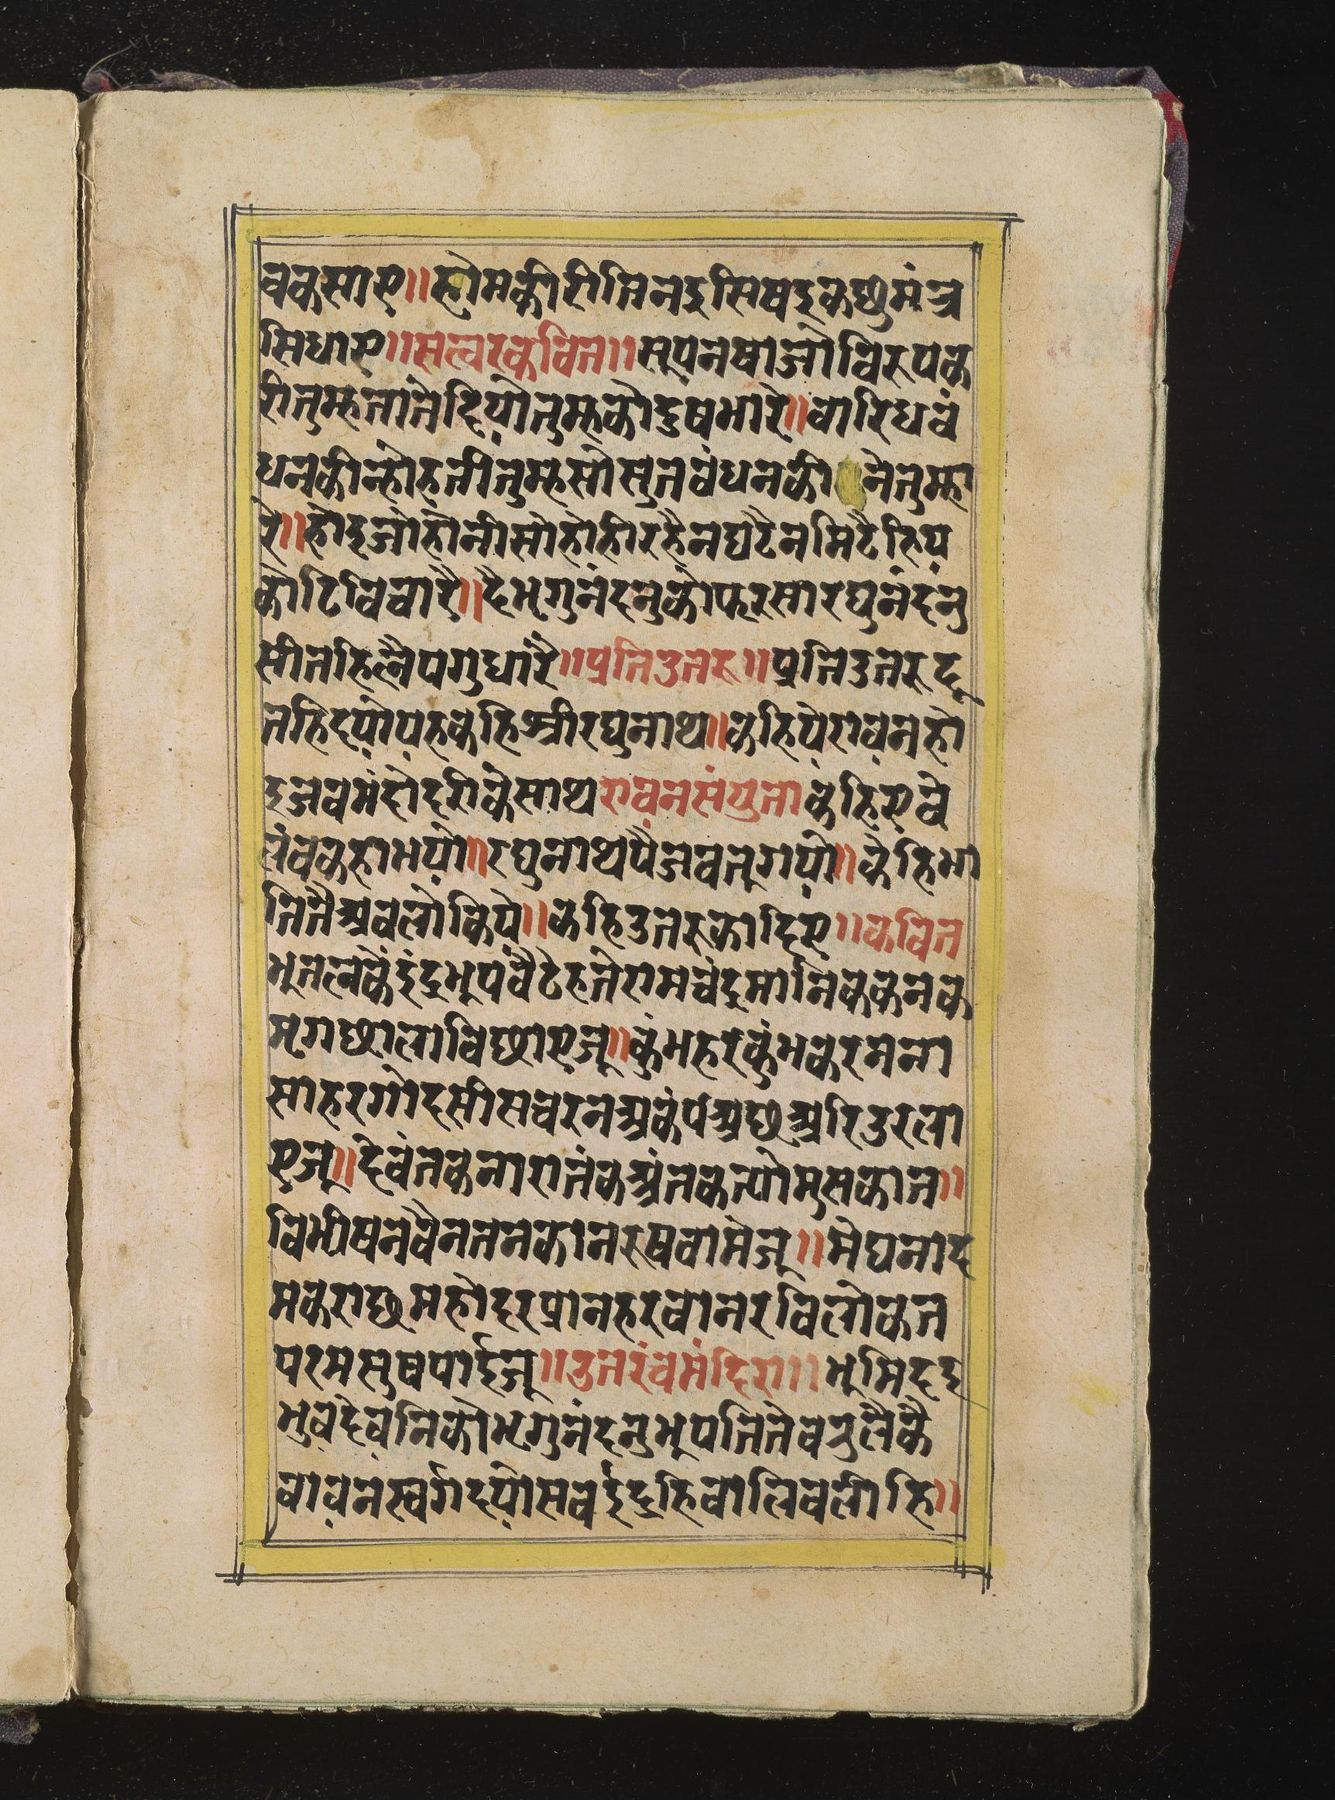 वकसाए॥होमकीरीतिनदुसिषइकछुमंत्र
सिधाए॥सत्वरकवित॥सूपनषाजोविरुपक
रीतुम्हतातेदियोतुम्हकोदुषभारे॥वारिधवं
धनकीन्होहतींतुम्हसोसुतवंधनकीनेतुम्हा
रे॥होइजोहोनीसोहोहीरहैनघटैनमिटैहिय
कोटिविचारै॥दैभृगुनंदनुकोफरसारघुनंदनु
सीतहिलैपगुधारै॥प्रतिउतरु॥प्रतिउतरुदू
तहिदयोयहकहिश्रीरघुनाथ॥कहियेरावनहो
इजवमंदोदरीकेसाथरावनसंयुताकहिएवे
लंवकहाभयो॥रघुनाथपैजवतूगयो॥केहिभा
तितैअवलोकिये॥कहिउतरुकोदिए॥कवित
भूतलकेइंदुभूपवैठेहतेरामचंदुमानिककनक
मृगछालाविछाएजू॥कुंभहरकुंभकरननना
साहरगोदसीसचरनअकंपअछअरिउरला
एजू॥देवंतकनारातंकअंतकत्योमुसकात॥
विभीषनवैनतनकानरुषवामेजू॥मेघनाद
मकराछमहोदरप्रानहरवानरविलोकत
परमसुषपाईजू॥उतरंवमंदिरा॥भूमिदइ
भुवदेवनिकोभृगुनंदनुभूपतितेवरुलैकै
वावनस्वर्गदयोसवइंद्रहिवालिवलीहि॥